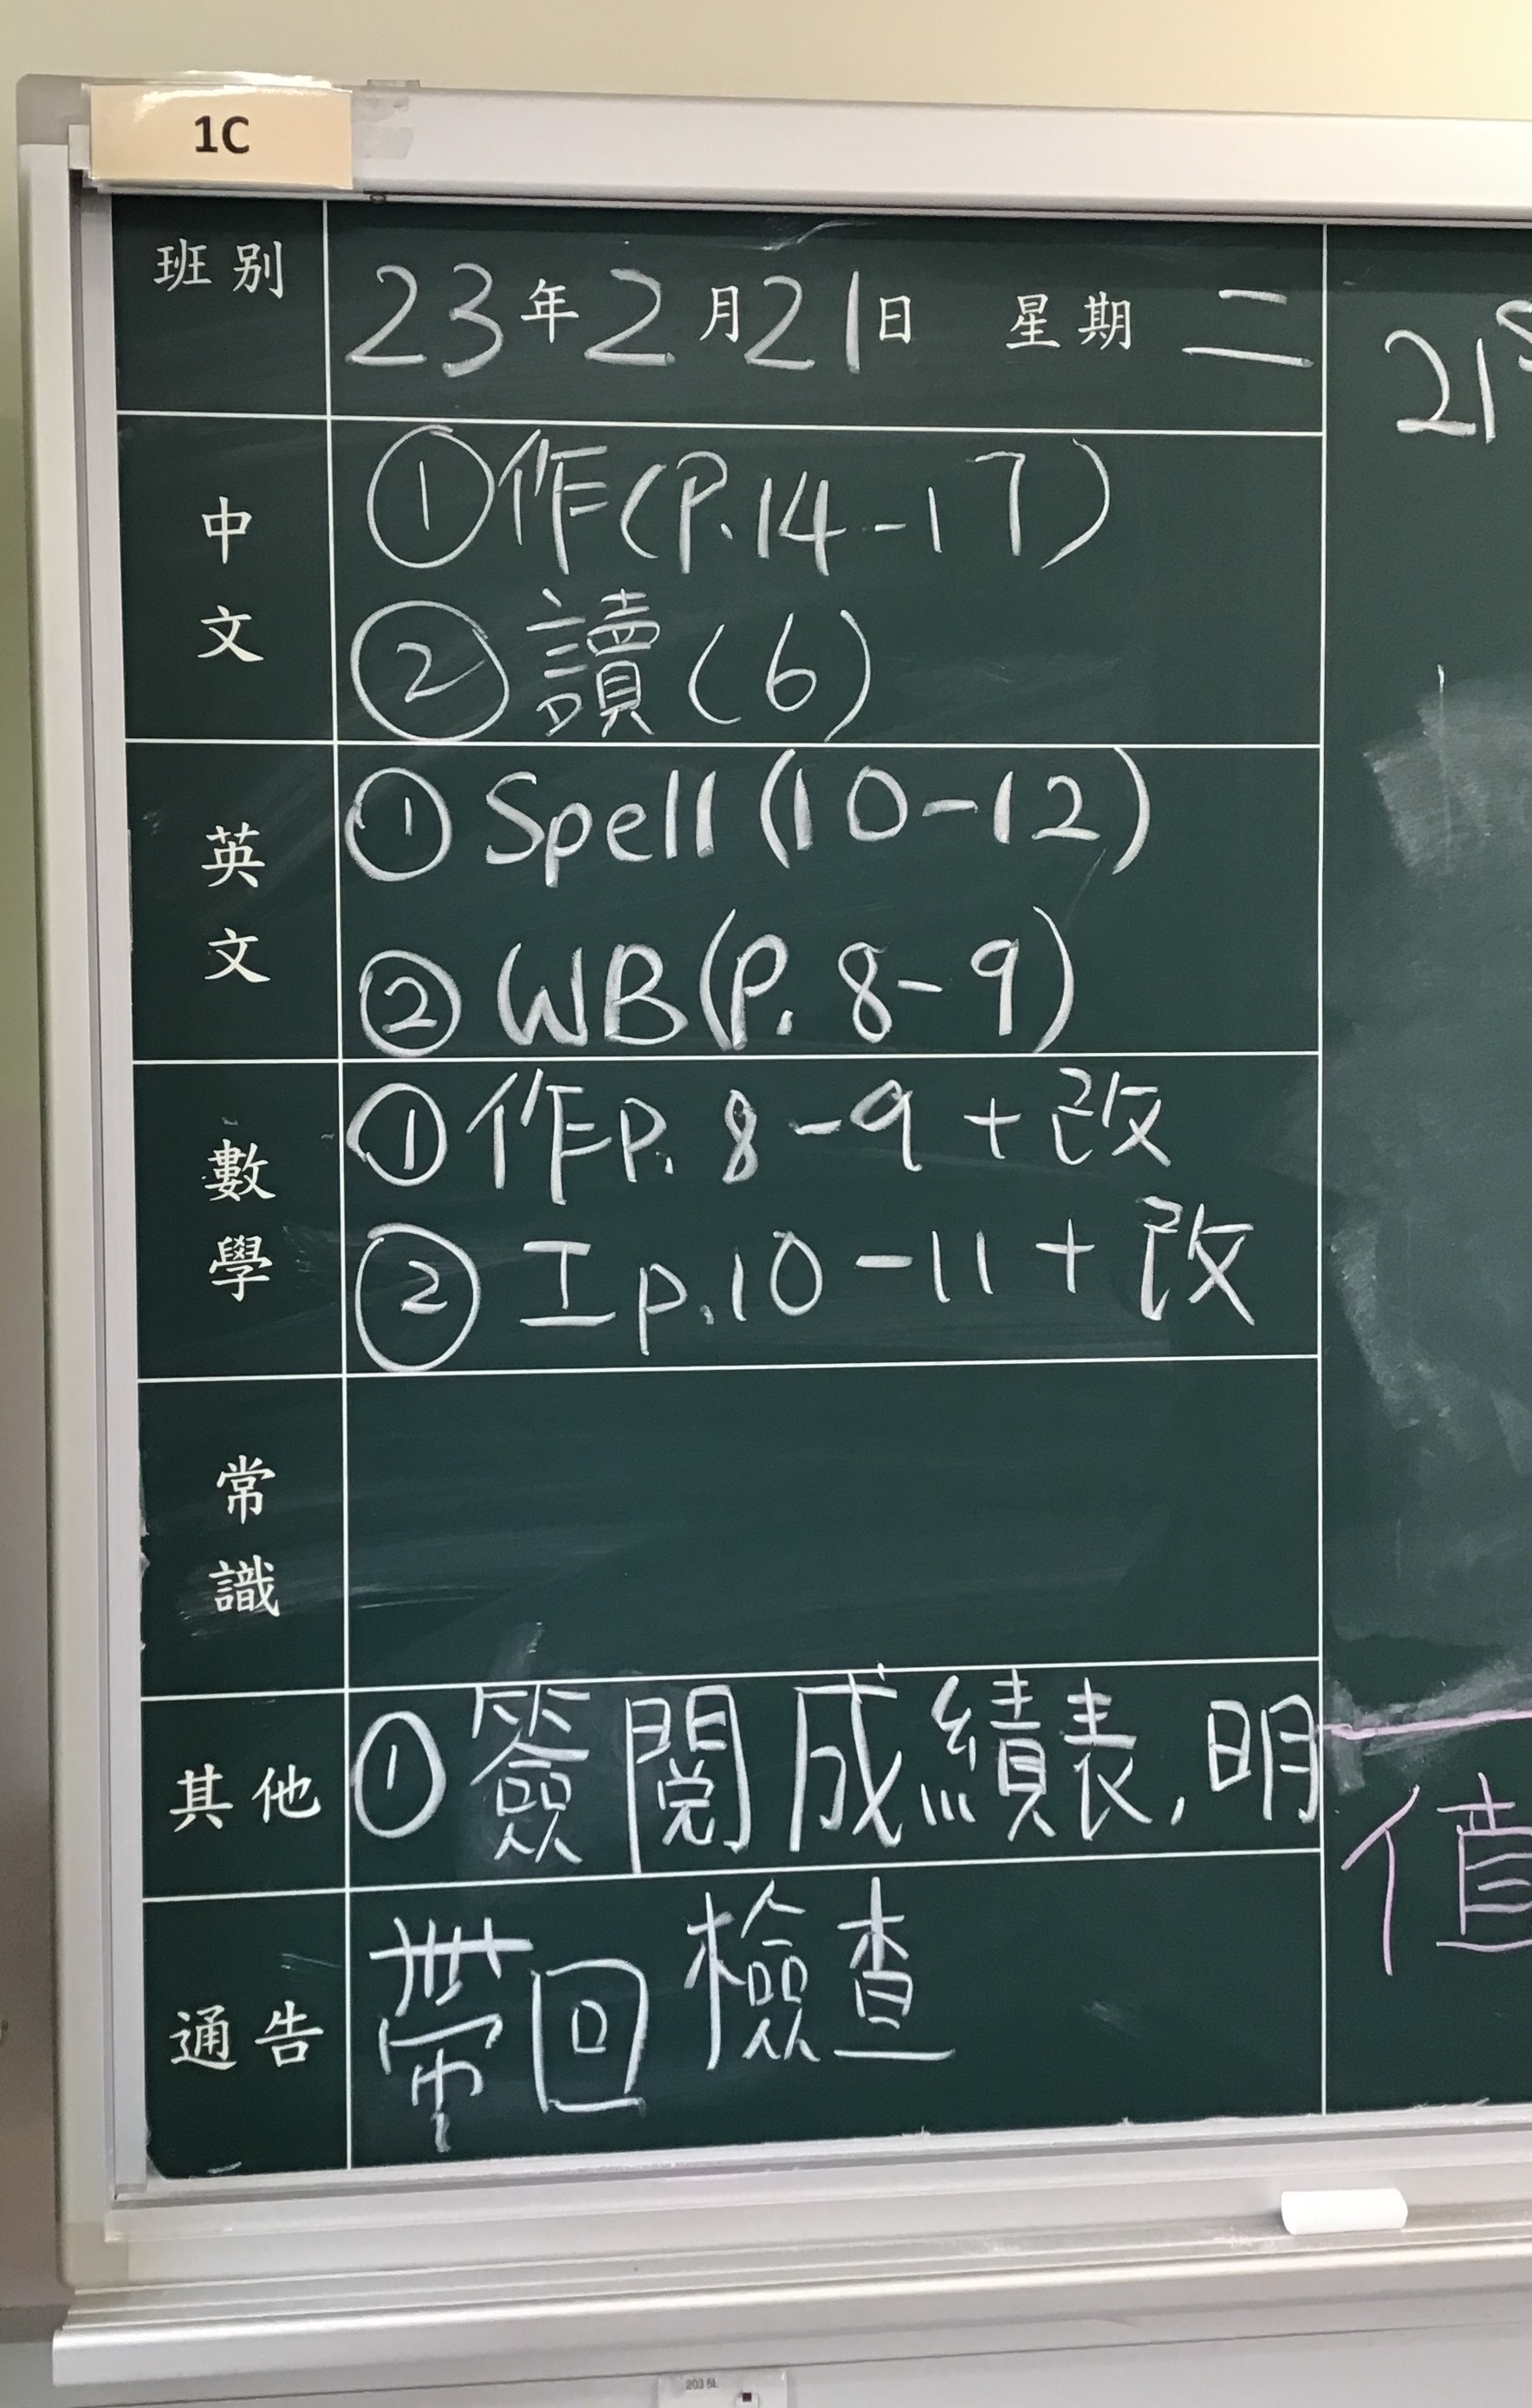 1C
班別 23年2月21日 星期二
中文
①作(P.14-17)
②讀(6)
英文
①Spell (10-12)
②WB(P. 8-9)
數學
①作P. 8-9 + 改
②工p.10-11 + 改
常識
其他 ①簽閱成績表,明
通告 帶回檢查
21
值
203 5L